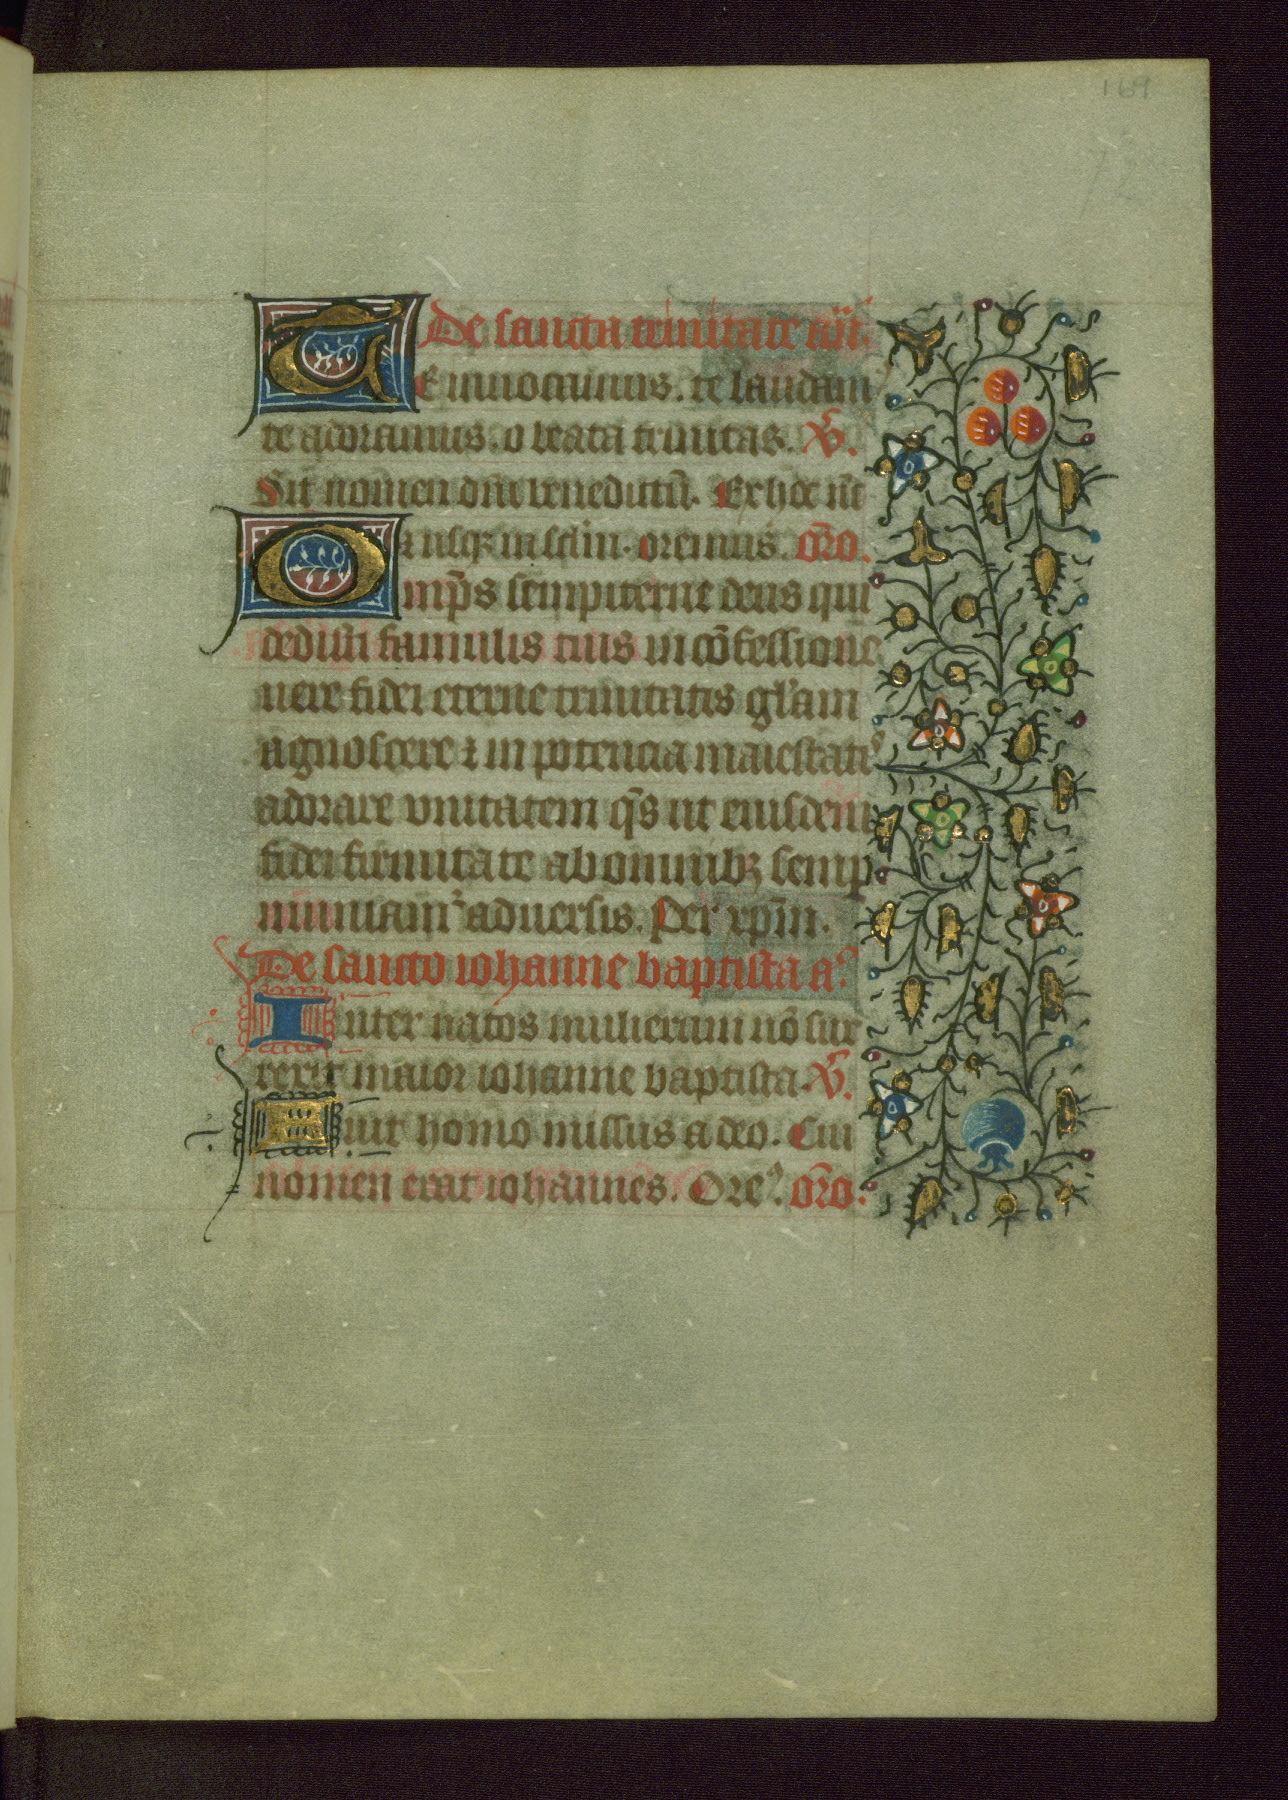 169
De sancta trinitate añ.
Te inuocamus. te laudam
te adoramus. o beata trinitas. V̄.
Sit nomen dñi benedictū. Ex hoc nc̄
& usqꝫ in sclm. oremus. ōro.
Omp̄s sempiterne deus qui
dedisti famulis tuis in cōfessione
uere fidei eterne trinitatis gl'am
agnoscere ⁊ in potencia maiestatꝭ
adorare vnitatem q̄s ut eiusdem
fidei firmitate ab omnibꝫ semp
muniam̃ aduersis. Per xp̄m.
De sancto iohanne baptista aꝰ
Inter natos mulierum nō sur
rexit maior iohanne baptista. V̄.
Fuit homo missus a deo. Cui
nomen erat iohannes. Oreꝰ. ōro.